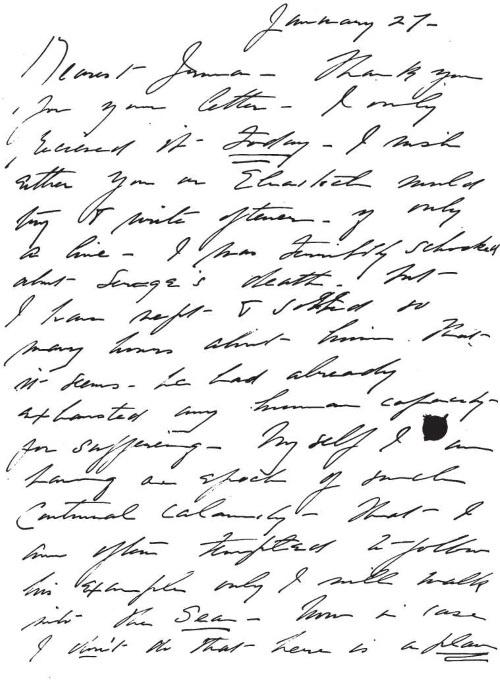 January 27-
Dearest Irma - Thank you
for your letter - I only
received it today - I wish
either you or Elizabeth would
try & write oftener - if only
a line - I was terribly schocked
about Serge's death. but -
I have wept & sobbed so
many hours about him. that-
it seems - he had already
exhausted any human capacity-
for suffering - Myself I am
having an epoch of such
Continual Calamity - that - I
am often tempted to follow
his example only I will walk
into the Sea - Now in case
I don't do that here is a plan